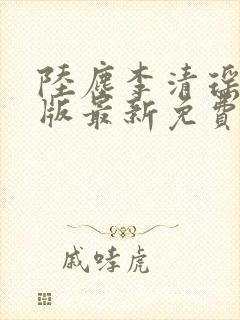 陸塵李清瑤
版最新免費
戚哮虎